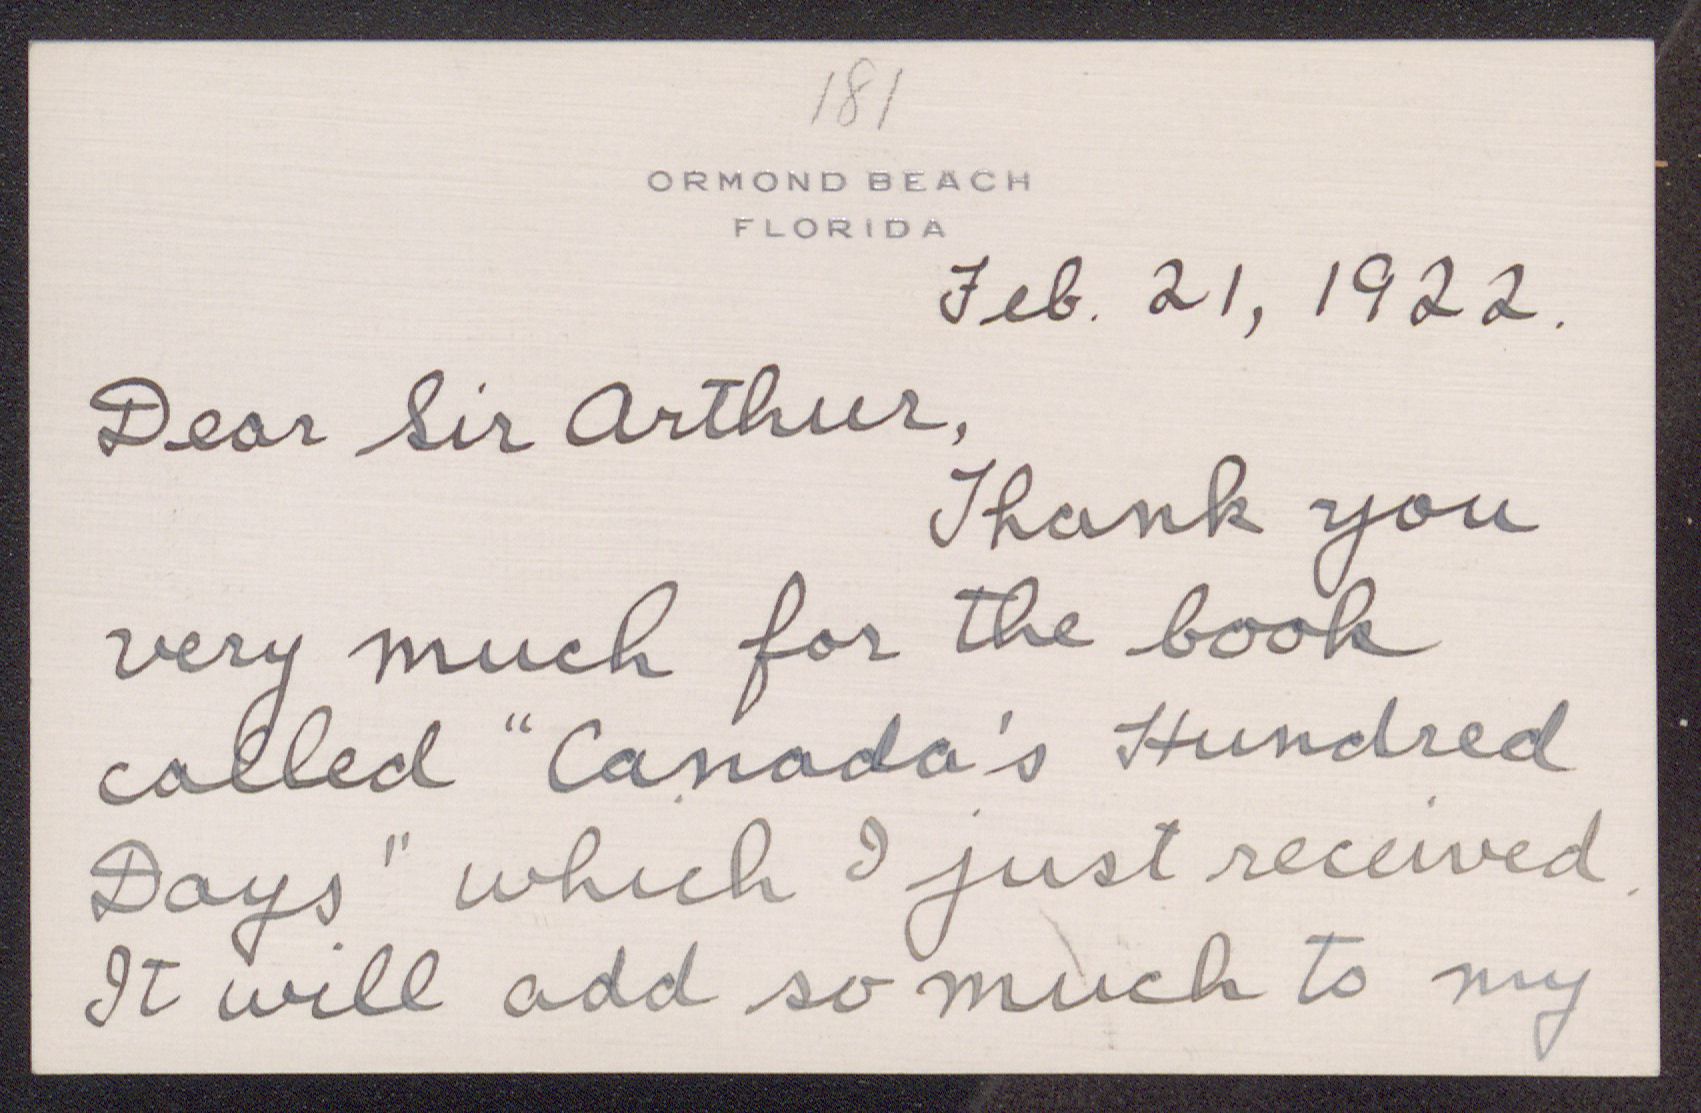 181
ORMOND BEACH
FLORIDA
Feb. 21, 1922.
Dear Sir Arthur,
Thank you
very much for the book
called "Canada's Hundred
Days" which I just received.
It will add so much to my